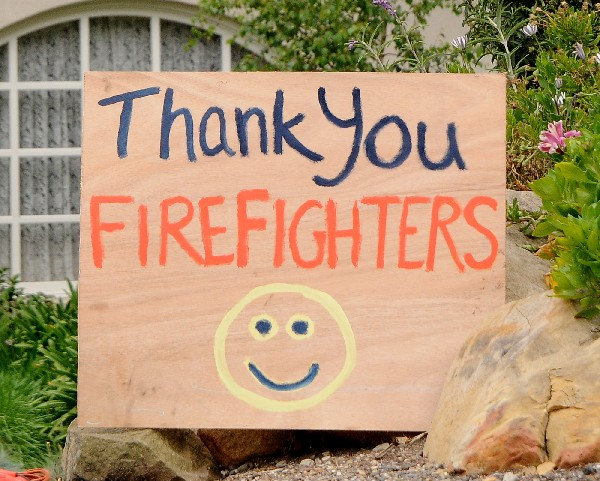 Thank You
FIREFIGHTERS